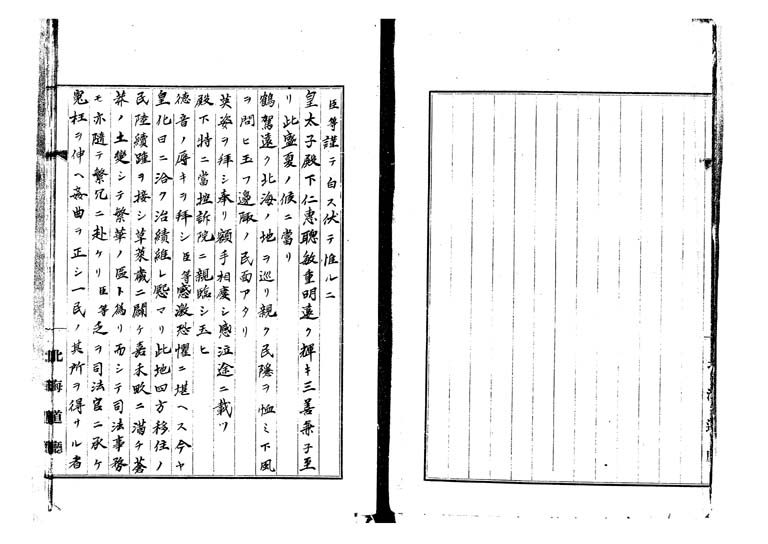 臣等謹テ白ス伏テ惟ルニ
皇太子殿下仁惠聰敏重明遠ク輝キ三善兼子至
リ此盛夏ノ候ニ當リ
鶴駕遠ク北海ノ地ヲ巡リ親ク民隱ヲ恤ミ下風
ヲ問ヒ玉フ邊陬ノ民面アタリ
英姿ヲ拜シ奉リ額手相慶シ感泣途ニ載ツ
殿下特ニ當控訴院ニ親臨シ玉ヒ
德音ノ辱キヲ拜シ臣等感激恐懼ニ堪ヘス今ヤ
皇化日ニ洽ク治績維レ熙マリ此地四方移住ノ
民陸續踵ヲ接シ草萊歲ニ闢ケ嘉禾畝ニ滿チ蒼
莽ノ土變シテ繁華ノ區ト爲リ而シテ司法事務
モ亦隨テ繁冗ニ赴ケリ臣等乏ヲ司法官ニ承ケ
冤枉ヲ伸ヘ姦曲ヲ正シ一民ノ其所ヲ得サル者
北海道廳